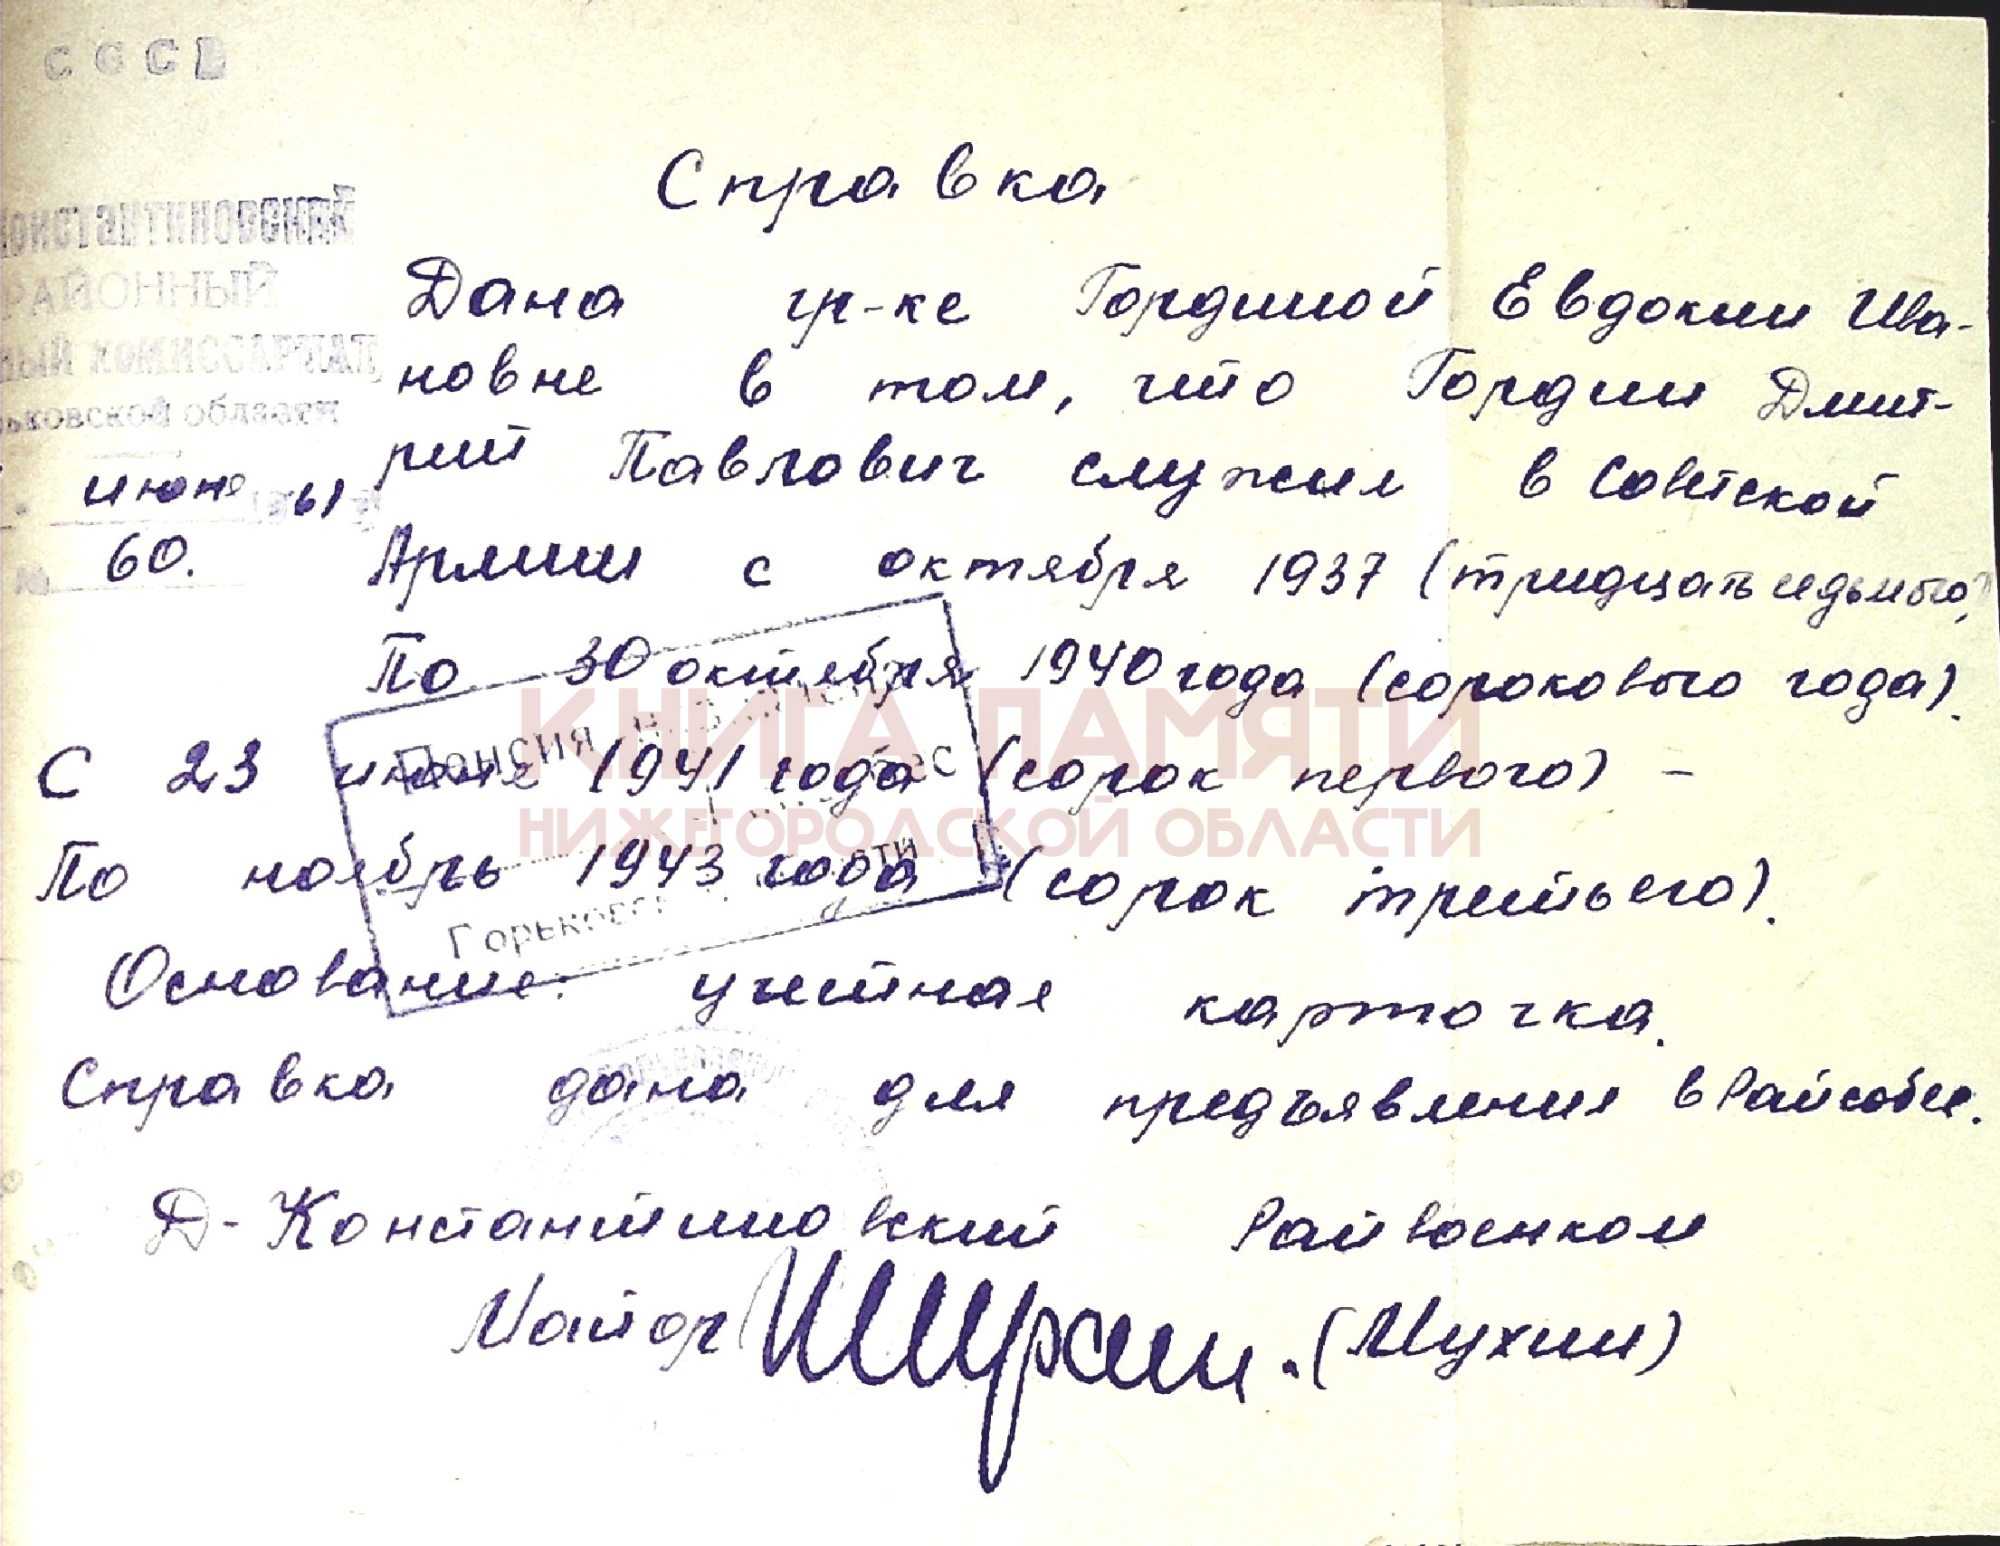 СССР
КОНСТАНТИНОВСКИЙ
РАЙОННЫЙ
КОМИССАРИАТ
области
июня 61
60.
Справка
Дана гр-ке Гординой Евдокии Ива-
новне в том, что Гордин Дмит-
рий Павлович служил в Советской
Армии с октября 1937 (тридцать седьмого)
По 30 октября 1940 года (сорокового года).
С 23 июня 1941 года (сорок первого) -
По ноябрь 1943 года (сорок третьего).
Основание: учетная карточка.
Справка дана для предъявления в Райсобес.
Д-Константиновский Райвоенком
Майор (Мухин)
Пенсия
КНИГА ПАМЯТИ
НИЖЕГОРОДСКОЙ ОБЛАСТИ